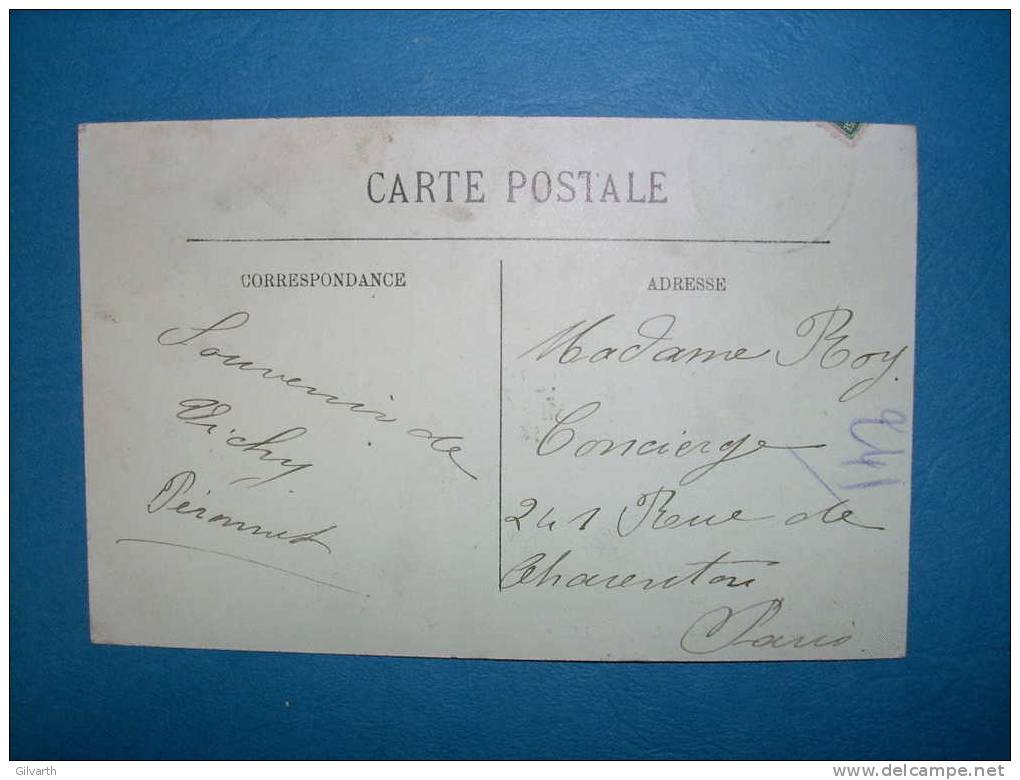 CARTE POSTALE
CORRESPONDANCE
Souvenir de
Vichy
ADRESSE
Madame Roy.
Concierge
241 Rue de
Charenton
Paris
241
Gilvarth
www.delcampe.net